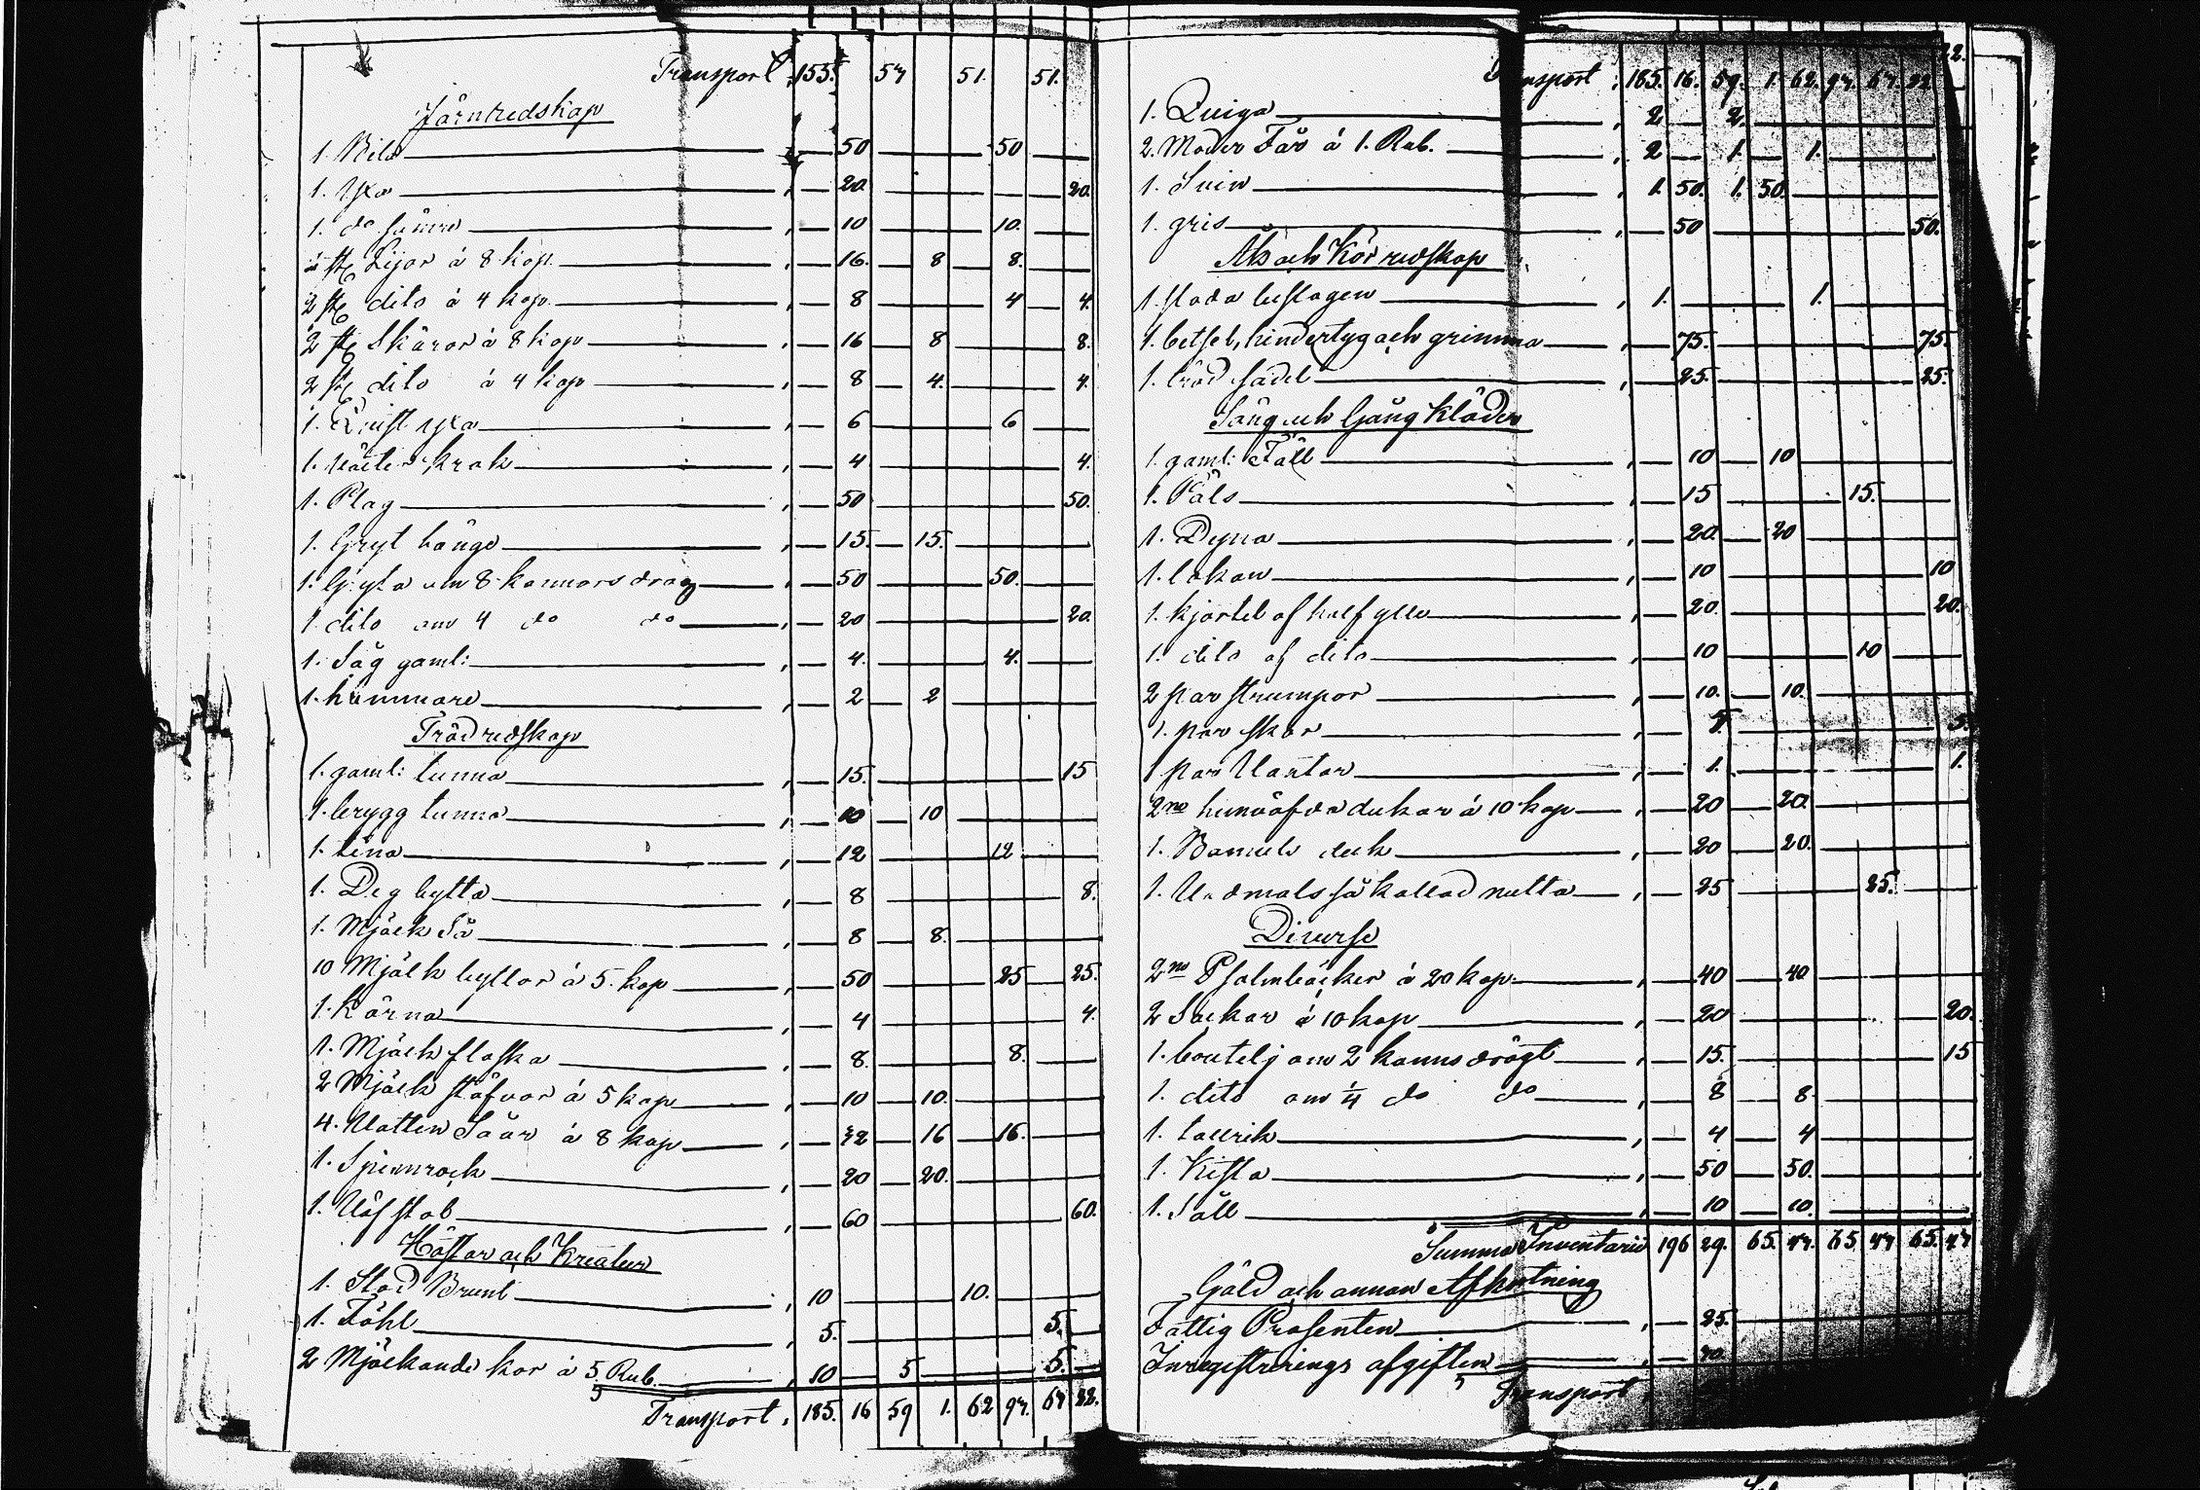 Transport, 153. 51. 51.
Järnredskap
1. Bila , 50 50
1. Yxa , 20 20.
1. do sämre , 10 10.
2 st Lijor á 8 kop. , 16. 8 8.
2 st dito á 4 kop. , 8 4 4.
2 st Skäror á 8 kop , 16 8 8.
2 st dito á 4 kop , 8 4. 4.
1. Quist yxa , 6 6
1. krok , 4 4.
1. Plog , 50 50.
1. Gryt hänge , 15. 15.
1. Gryta om 8 kannors drag , 50 50.
1 dito om 4 do do , 20 20.
1. Såg gaml: , 4. 4.
1. hammare , 2 2
Trädredskap
1. gaml: tunna , 15. 15
1. brygg tunna , 10 10
1. tina , 12 12
1. Deg bytta , 8 8.
1 Mjölk Så , 8 8.
10 Mjölk byttor á 5. kop , 50 25 25.
1. Kärna , 4 4.
1. Mjölk flaska , 8. 8.
2 Mjölk stäfvor á 5 kop , 10 10.
4. Vatten Såar á 8 kop , 32 16 16.
1. Spinnrock , 20 20.
1. Väfstol , 60 60.
Hästar och Kreatur
1. Stod Brunt , 10 10.
1. Föhl , 5. 5.
2 Mjölkande kor á 5 Rub. , 10 5 5.
Transport, 185. 16 59 1. 62 97. 22.
Transport, 185. 16. 59. 1. 62. 97. 22
1. Quiga , 2 2.
2. Moder Får á 1. Rub. , 2 1. 1.
1. Svin , 1. 50. 1. 50.
1. gris , 50 50.
Åk och Kör redskap
1. släda beslagen , 1. 1.
1. betsel, hindertyg och grimma , 75. 75.
1. träd sadel , 25. 25.
Säng och Gång Kläder
1. gaml: Fäll , 10 10
1. Päls , 15 15.
1. Dyna , 20. 20
1. lakan , 10 10
1. kjortel af half ylle , 20. 20.
1. dito af dito , 10 10
2 par strumpor , 10. 10.
1. par skor , 5. 5.
1 par Vantar , 1. 1.
2no dukar á 10 kop , 20 20.
1. Bomuls duk , 20 20.
1. Vadmals så kallad mutta , 25 25.
Diverse
2no Psalmböcker á 20 kop , 40 40
2 Säckar á 10 kop , 20 20.
1. boutelj om 2 kanns drägt , 15. 15
1. dito om 1/4 do do , 8 8.
1. tallrik , 4 4
1. Kista , 50 50.
1. Såll , 10 10.
Summa Inventarii 196 29. 65. 47. 65 47 65. 47
Gäld och annan Afkortning
Fattig Procenten , 25.
Inregistrerings afgiften
Transport